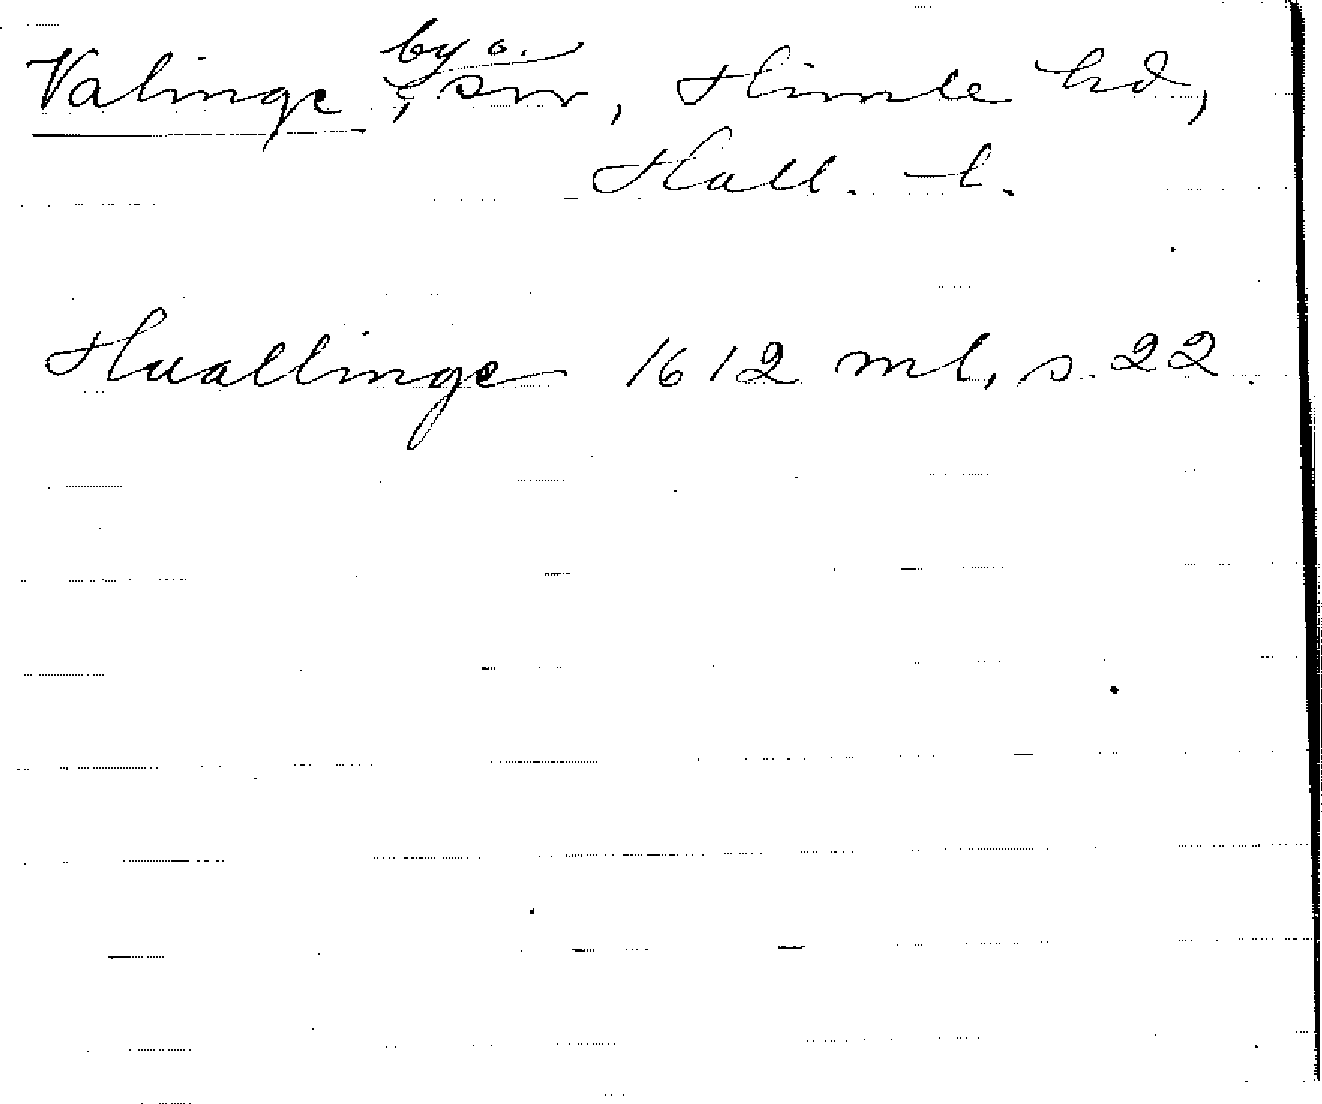 Valinge, by o. sn, Himle hd,
Hall. l.
Huallinge 1612 ml, s. 22.